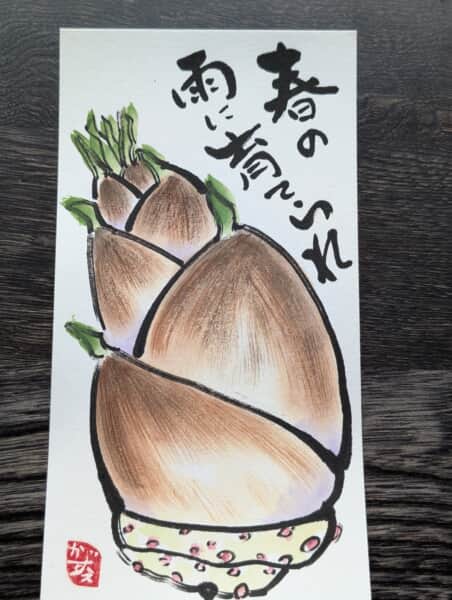 春の
雨に育てられ
かずえ